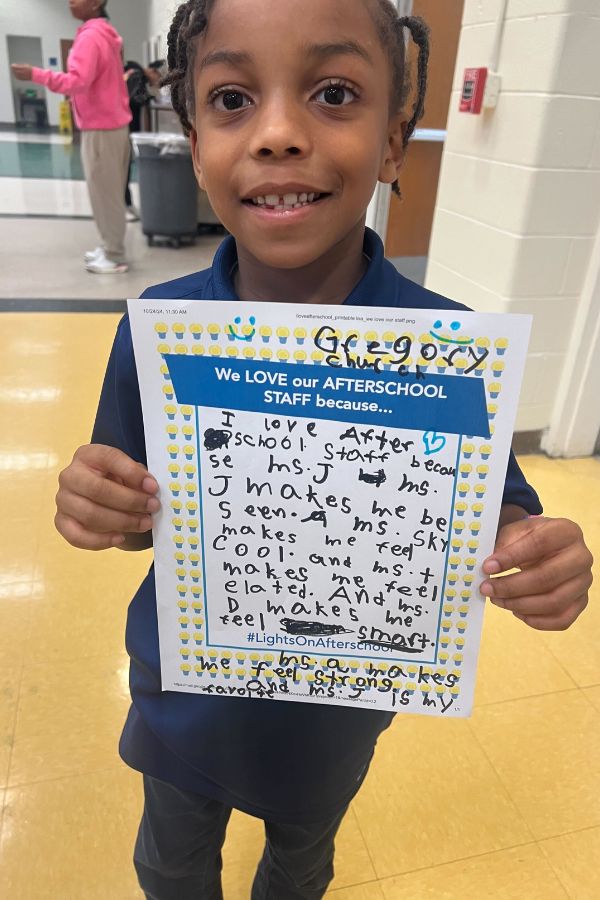 10/24/24, 11:30 AM
iloveafterschool_printable lisa_we love our staff.png
Gregory
church
We LOVE our AFTERSCHOOL
STAFF because...
I love After
school staff becau
se ms. J ms.
J makes me be
seen. ms. Sky
makes me feel
cool. and ms. t
makes me feel
elated. And ms.
D makes me
feel smart.
#LightsOnAfterschool
ms. a makes
me feel strong.
and ms. J is my
favorite
1/1